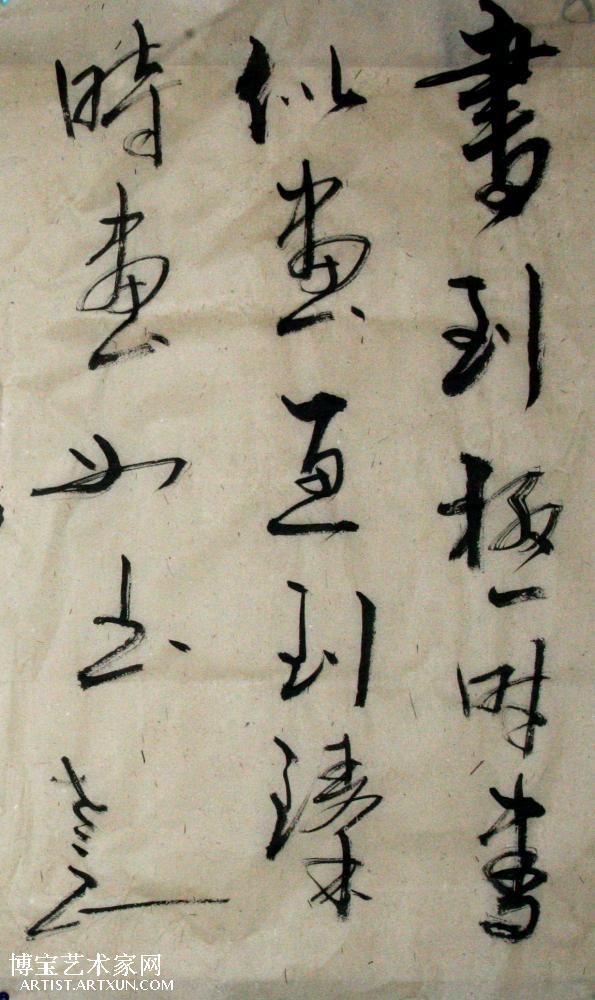 書到極时書
似畫画到臻
時畫如书
博宝艺术家网
ARTIST.ARTXUN.COM